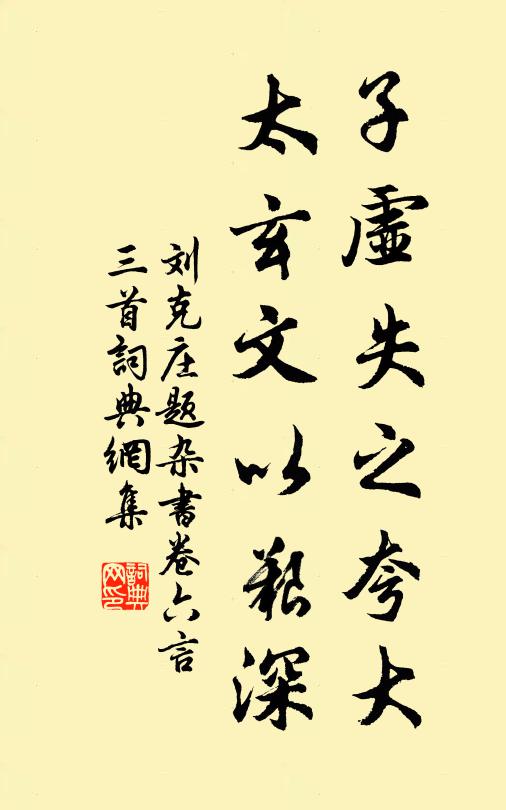 子虛失之夸大
太玄文以艱深
刘克庄题杂書卷六言
三首詞典網集
詞典
网印